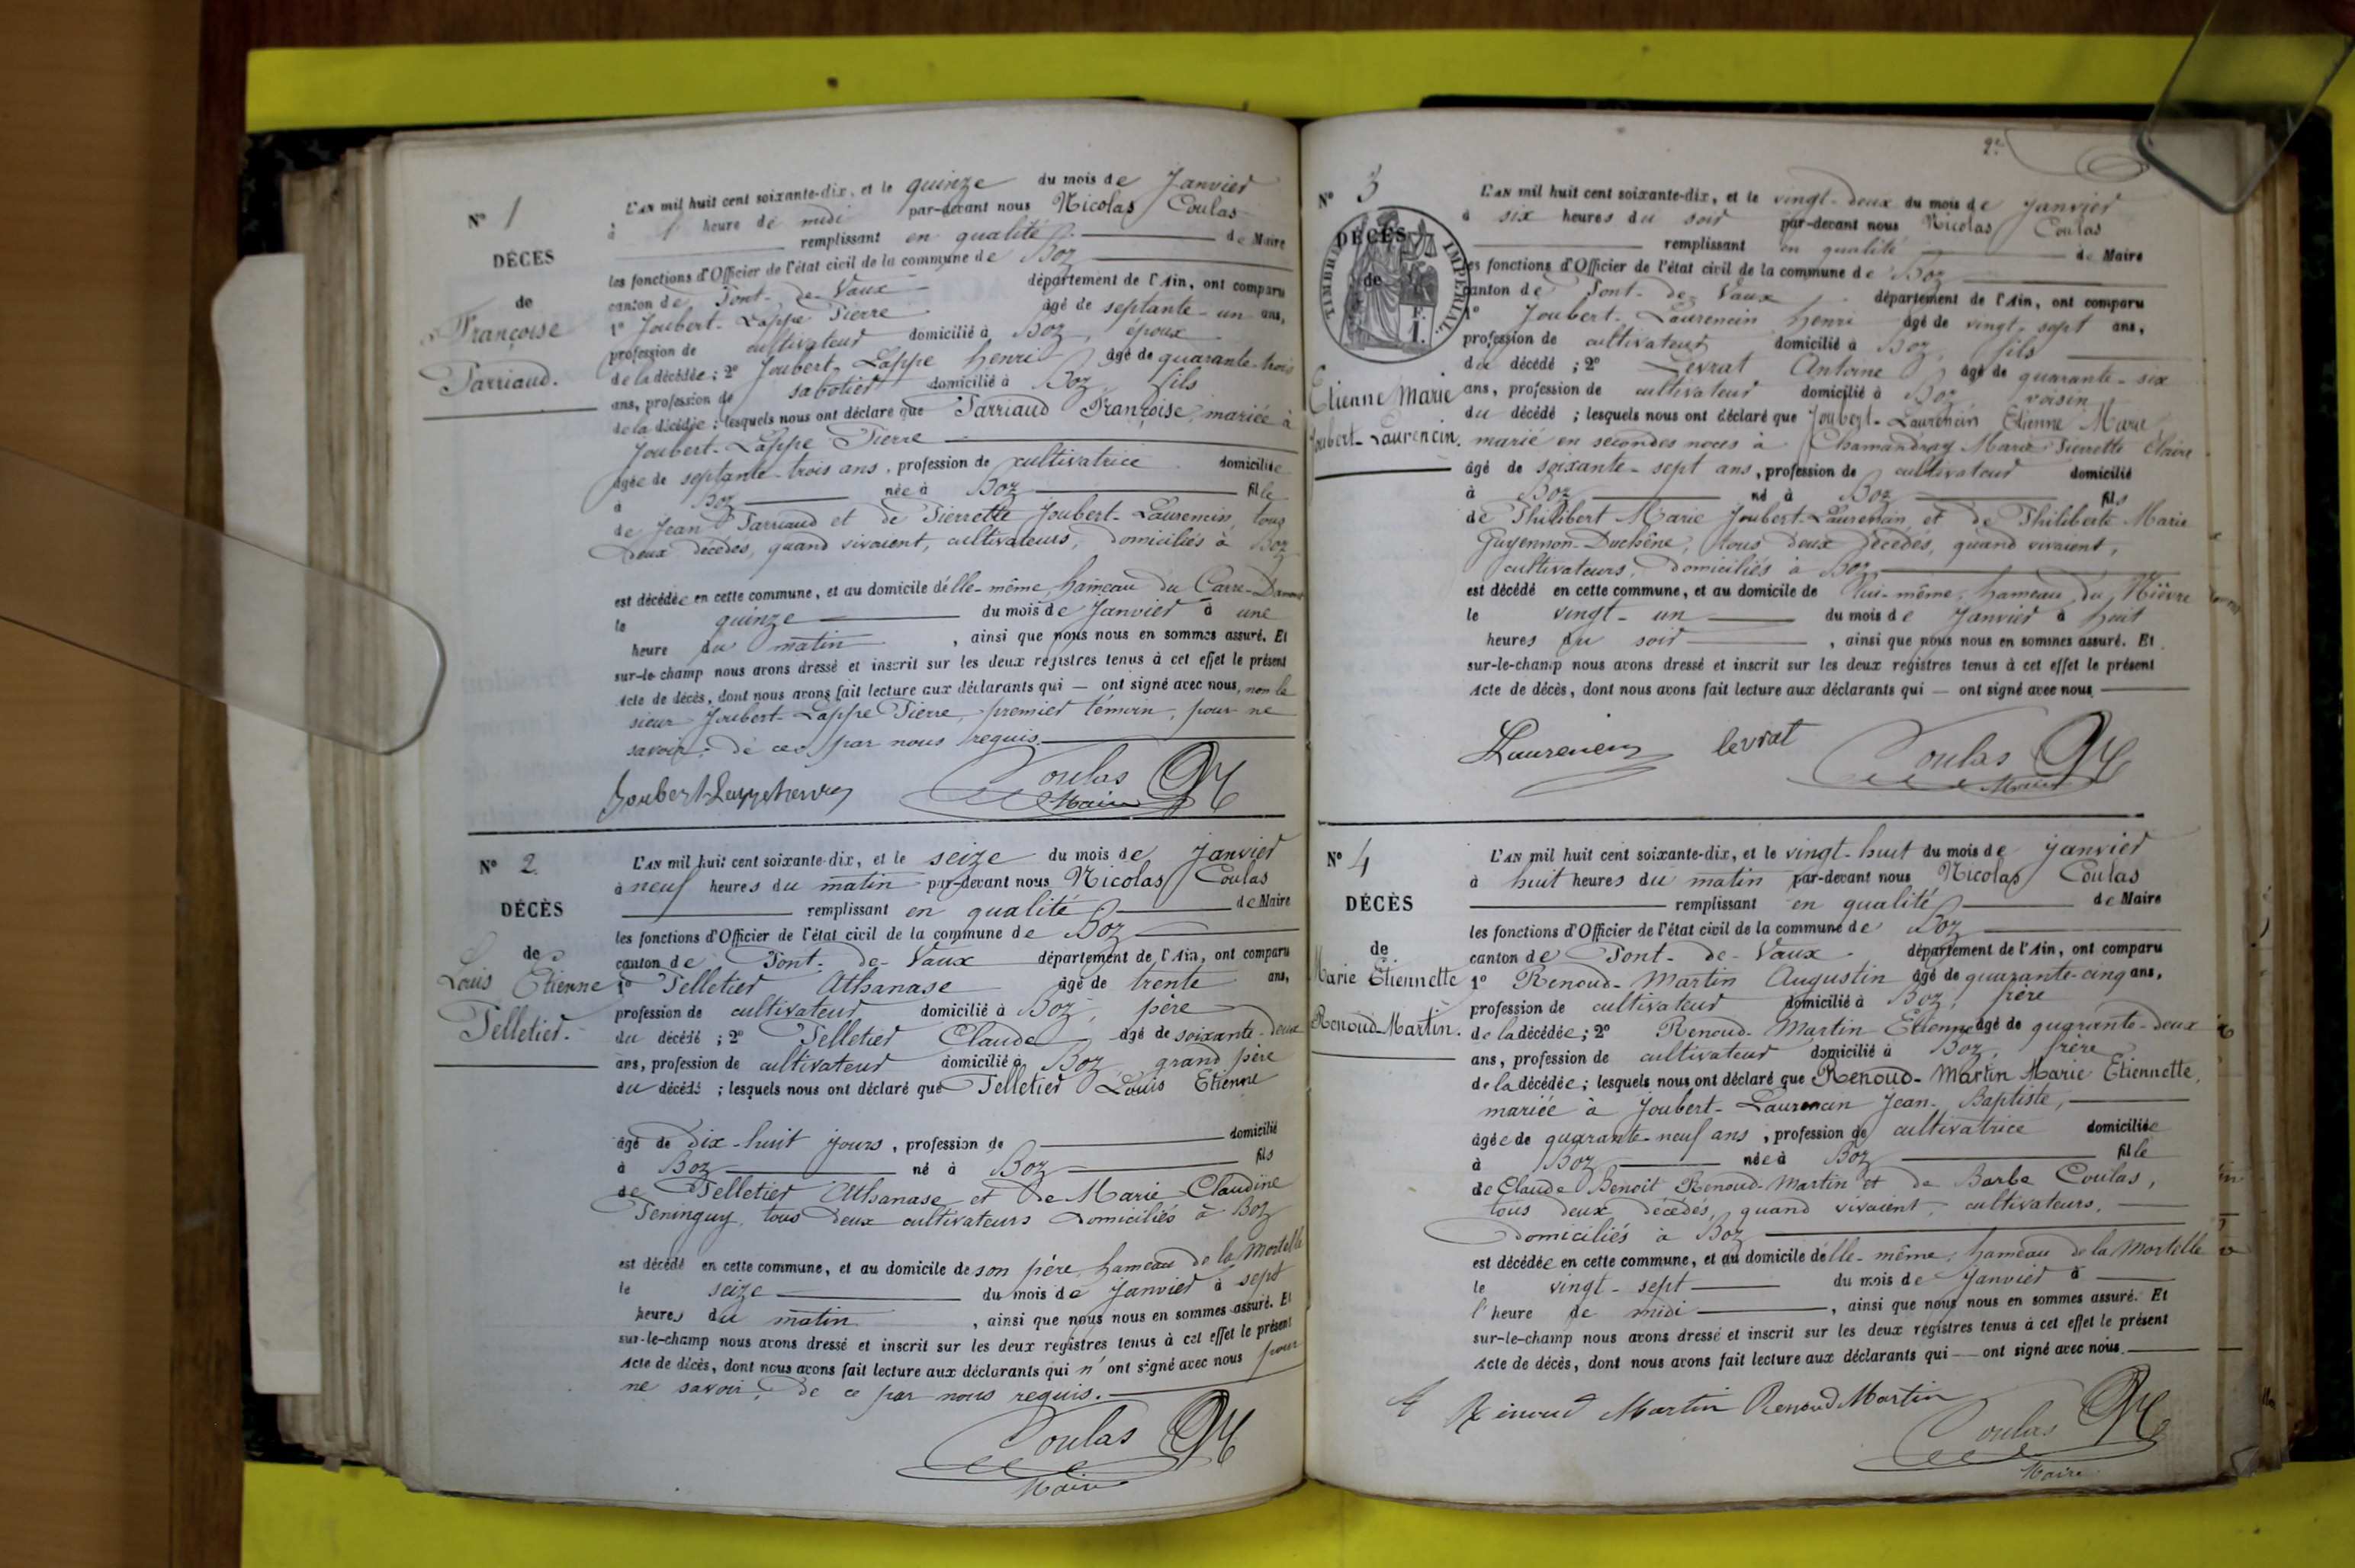 N° 1
DÉCÈS
de
Françoise
Parriaud.
L'AN mil huit cent soixante-dix, et le quinze du mois de Janvier
à l heure de midi par-devant nous Nicolas Coulas
remplissant en qualité de Maire
les fonctions d'Officier de l'état civil de la commune de Boz
canton de Pont-de-Vaux département de l'Ain, ont comparu
1° Joubert-Lappe Pierre âgé de septante-un ans,
profession de cultivateur domicilié à Boz, époux
de la décédée ; 2° Joubert-Lappe henri âgé de quarante-trois
ans, profession de sabotier domicilié à Boz, fils
de la décédée ; lesquels nous ont déclaré que Parriaud Françoise, mariée à
Joubert-Lappe Pierre
âgée de septante-trois ans, profession de cultivatrice domiciliée
à Boz née à Boz fille
de Jean Parriaud et de Pierrette Joubert-Laurencin, tous
deux décédés, quand vivaient, cultivateurs, domiciliés à Boz
est décédée en cette commune, et au domicile d'elle-même, hameau du Carre-
le quinze du mois de Janvier à une
heure du matin , ainsi que nous nous en sommes assuré. Et
sur-le-champ nous avons dressé et inscrit sur les deux registres tenus à cet effet le présent
Acte de décès, dont nous avons fait lecture aux déclarants qui — ont signé avec nous, non le
sieur Joubert-Lappe Pierre, premier témoin, pour ne
savoir, de ce par nous requis.
Coulas
Maire
N° 2
DÉCÈS
de
Louis Etienne
Pelletier.
L'AN mil huit cent soixante-dix, et le seize du mois de Janvier
à neuf heures du matin par-devant nous Nicolas Coulas
remplissant en qualité de Maire
les fonctions d'Officier de l'état civil de la commune de Boz
canton de Pont-de-Vaux département de l'Ain, ont comparu
1° Pelletier Athanase âgé de trente ans,
profession de cultivateur domicilié à Boz, père
du décédé ; 2° Pelletier Claude âgé de soixante-deux
ans, profession de cultivateur domicilié à Boz grand père
du décédé ; lesquels nous ont déclaré que Pelletier Louis Etienne
âgé de dix-huit jours, profession de domicilié
à Boz né à Boz fils
de Pelletier Athanase et de Marie Claudine
Peninguy, tous deux cultivateurs domiciliés à Boz
est décédé en cette commune, et au domicile de son père, hameau de la Mortelle
le seize du mois de Janvier à sept
heures du matin , ainsi que nous nous en sommes assuré. Et
sur-le-champ nous avons dressé et inscrit sur les deux registres tenus à cet effet le présent
Acte de décès, dont nous avons fait lecture aux déclarants qui n'ont signé avec nous pour
ne savoir, de ce par nous requis.
Coulas
Maire
2e
N° 3
DÉCÈS
de
TIMBRE IMPÉRIAL.
Etienne Marie
Joubert-Laurencin.
L'AN mil huit cent soixante-dix, et le vingt-deux du mois de Janvier
à six heures du soir par-devant nous Nicolas Coulas
remplissant en qualité de Maire
les fonctions d'Officier de l'état civil de la commune de Boz
canton de Pont-de-Vaux département de l'Ain, ont comparu
1° Joubert-Laurencin henri âgé de vingt-sept ans,
profession de cultivateur domicilié à Boz, fils
du décédé ; 2° Levrat Antoine âgé de quarante-six
ans, profession de cultivateur domicilié à Boz voisin
du décédé ; lesquels nous ont déclaré que Joubert-Laurencin Etienne Marie,
marié en secondes noces à Chamandray Marie Pierrette Claire
âgé de soixante-sept ans, profession de cultivateur domicilié
à Boz né à Boz fils
de Philibert Marie Joubert-Laurencin et de Philiberte Marie
Guyennon-Duchêne, tous deux décédés, quand vivaient,
cultivateurs, domiciliés à Boz
est décédé en cette commune, et au domicile de lui-même, hameau du Nièvre
le vingt-un du mois de Janvier à huit
heures du soir , ainsi que nous nous en sommes assuré. Et
sur-le-champ nous avons dressé et inscrit sur les deux registres tenus à cet effet le présent
Acte de décès, dont nous avons fait lecture aux déclarants qui — ont signé avec nous
Laurencin levrat Coulas
Maire
N° 4
DÉCÈS
de
Marie Etiennette
Renoud-Martin.
L'AN mil huit cent soixante-dix, et le vingt-huit du mois de Janvier
à huit heures du matin par-devant nous Nicolas Coulas
remplissant en qualité de Maire
les fonctions d'Officier de l'état civil de la commune de Boz
canton de Pont-de-Vaux département de l'Ain, ont comparu
1° Renoud-Martin Augustin âgé de quarante-cinq ans,
profession de cultivateur domicilié à Boz, frère
de la décédée ; 2° Renoud-Martin Etienne âgé de quarante-deux
ans, profession de cultivateur domicilié à Boz, frère
de la décédée ; lesquels nous ont déclaré que Renoud-Martin Marie Etiennette,
mariée à Joubert-Laurencin Jean-Baptiste,
âgée de quarante-neuf ans, profession de cultivatrice domiciliée
à Boz née à Boz fille
de Claude Benoit Renoud-Martin et de Barbe Coulas,
tous deux décédés, quand vivaient, cultivateurs,
domiciliés à Boz
est décédée en cette commune, et au domicile d'elle-même, hameau de la Mortelle
le vingt-sept du mois de Janvier à
l'heure de midi , ainsi que nous nous en sommes assuré. Et
sur-le-champ nous avons dressé et inscrit sur les deux registres tenus à cet effet le présent
Acte de décès, dont nous avons fait lecture aux déclarants qui — ont signé avec nous
Renoud Martin Renoud Martin
Coulas
Maire